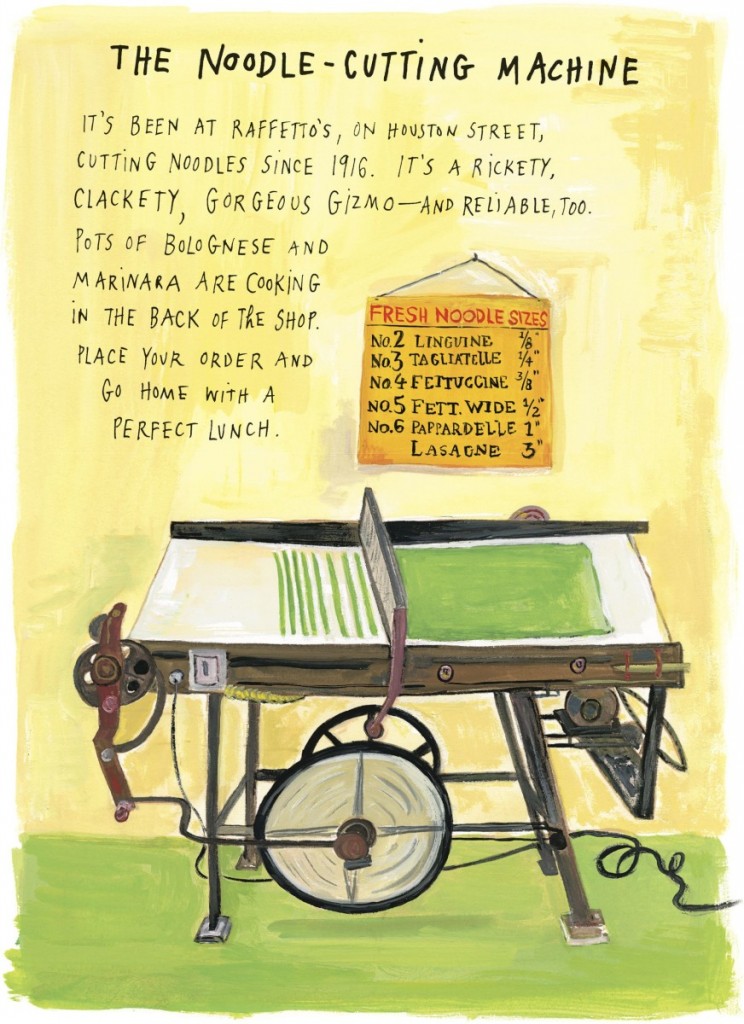 THE NOODLE-CUTTING MACHINE
IT'S BEEN AT RAFFETTO'S, ON HOUSTON STREET,
CUTTING NOODLES SINCE 1916. IT'S A RICKETY,
CLACKETY, GORGEOUS GIZMO—AND RELIABLE, TOO.
POTS OF BOLOGNESE AND
MARINARA ARE COOKING
IN THE BACK OF THE SHOP.
PLACE YOUR ORDER AND
GO HOME WITH A
PERFECT LUNCH.
FRESH NOODLE SIZES
No.2 LINGUINE 1/8"
No.3 TAGLIATELLE 1/4"
No.4 FETTUCCINE 3/8"
No.5 FETT. WIDE 1/2"
No.6 PAPPARDELLE 1"
LASAGNE 3"